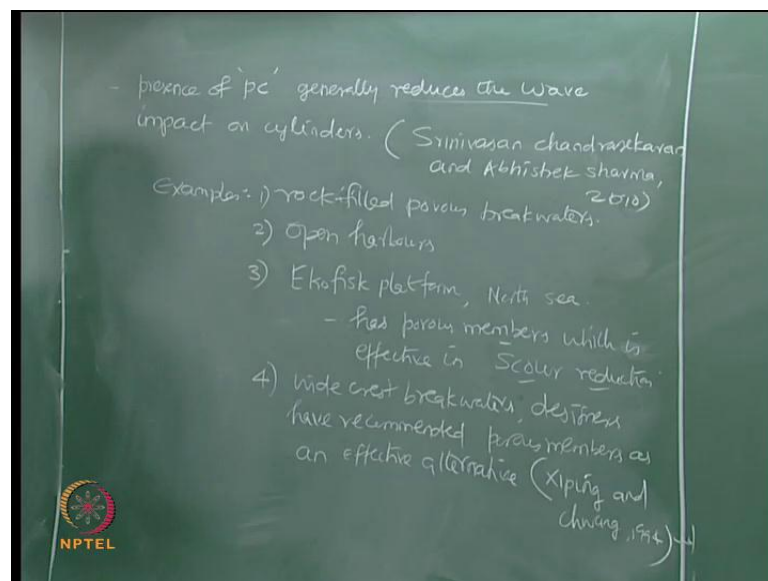 - presence of 'pc' generally reduces the wave
impact on cylinders. (Srinivasan chandrasekaran
and Abhishek sharma,
2010)
Examples: 1) rock-filled porous breakwaters.
2) Open harbours
3) Ekofisk platform, North sea.
- has porous members which is
effective in Scour reduction
4) wide crest breakwaters, designers
have recommended porous members as
an effective alternative (Xiping and
chwang, 1994)
NPTEL